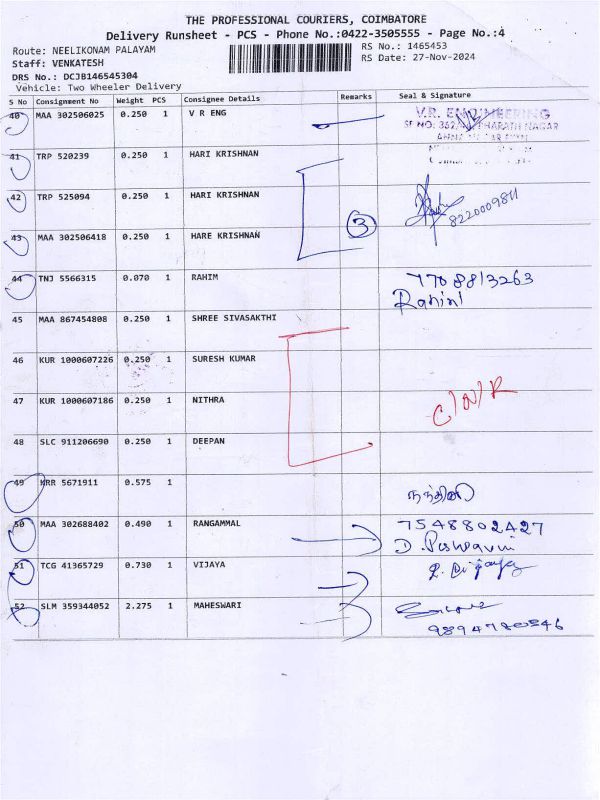 THE PROFESSIONAL COURIERS, COIMBATORE
Delivery Runsheet - PCS - Phone No.:0422-3505555 - Page No.:4
Route: NEELIKONAM PALAYAM
RS No.: 1465453
Staff: VENKATESH
RS Date: 27-Nov-2024
DRS No.: DCJB146545304
Vehicle: Two Wheeler Delivery
S No Consignment No Weight PCS Consignee Details Remarks Seal & Signature
40 MAA 302506025 0.250 1 V R ENG V.R. ENGINEERING
BHARATH NAGAR
41 TRP 520239 0.250 1 HARI KRISHNAN
42 TRP 525094 0.250 1 HARI KRISHNAN 3 8220009811
43 MAA 302506418 0.250 1 HARE KRISHNAN
44 TNJ 5566315 0.070 1 RAHIM 7708813263
45 MAA 867454808 0.250 1 SHREE SIVASAKTHI
46 KUR 1000607226 0.250 1 SURESH KUMAR
47 KUR 1000607186 0.250 1 NITHRA C/N/R
48 SLC 911206690 0.250 1 DEEPAN
49 KRR 5671911 0.575 1 நந்தினி
50 MAA 302688402 0.490 1 RANGAMMAL 7548802427
51 TCG 41365729 0.730 1 VIJAYA
52 SLM 359344052 2.275 1 MAHESWARI
9894780546